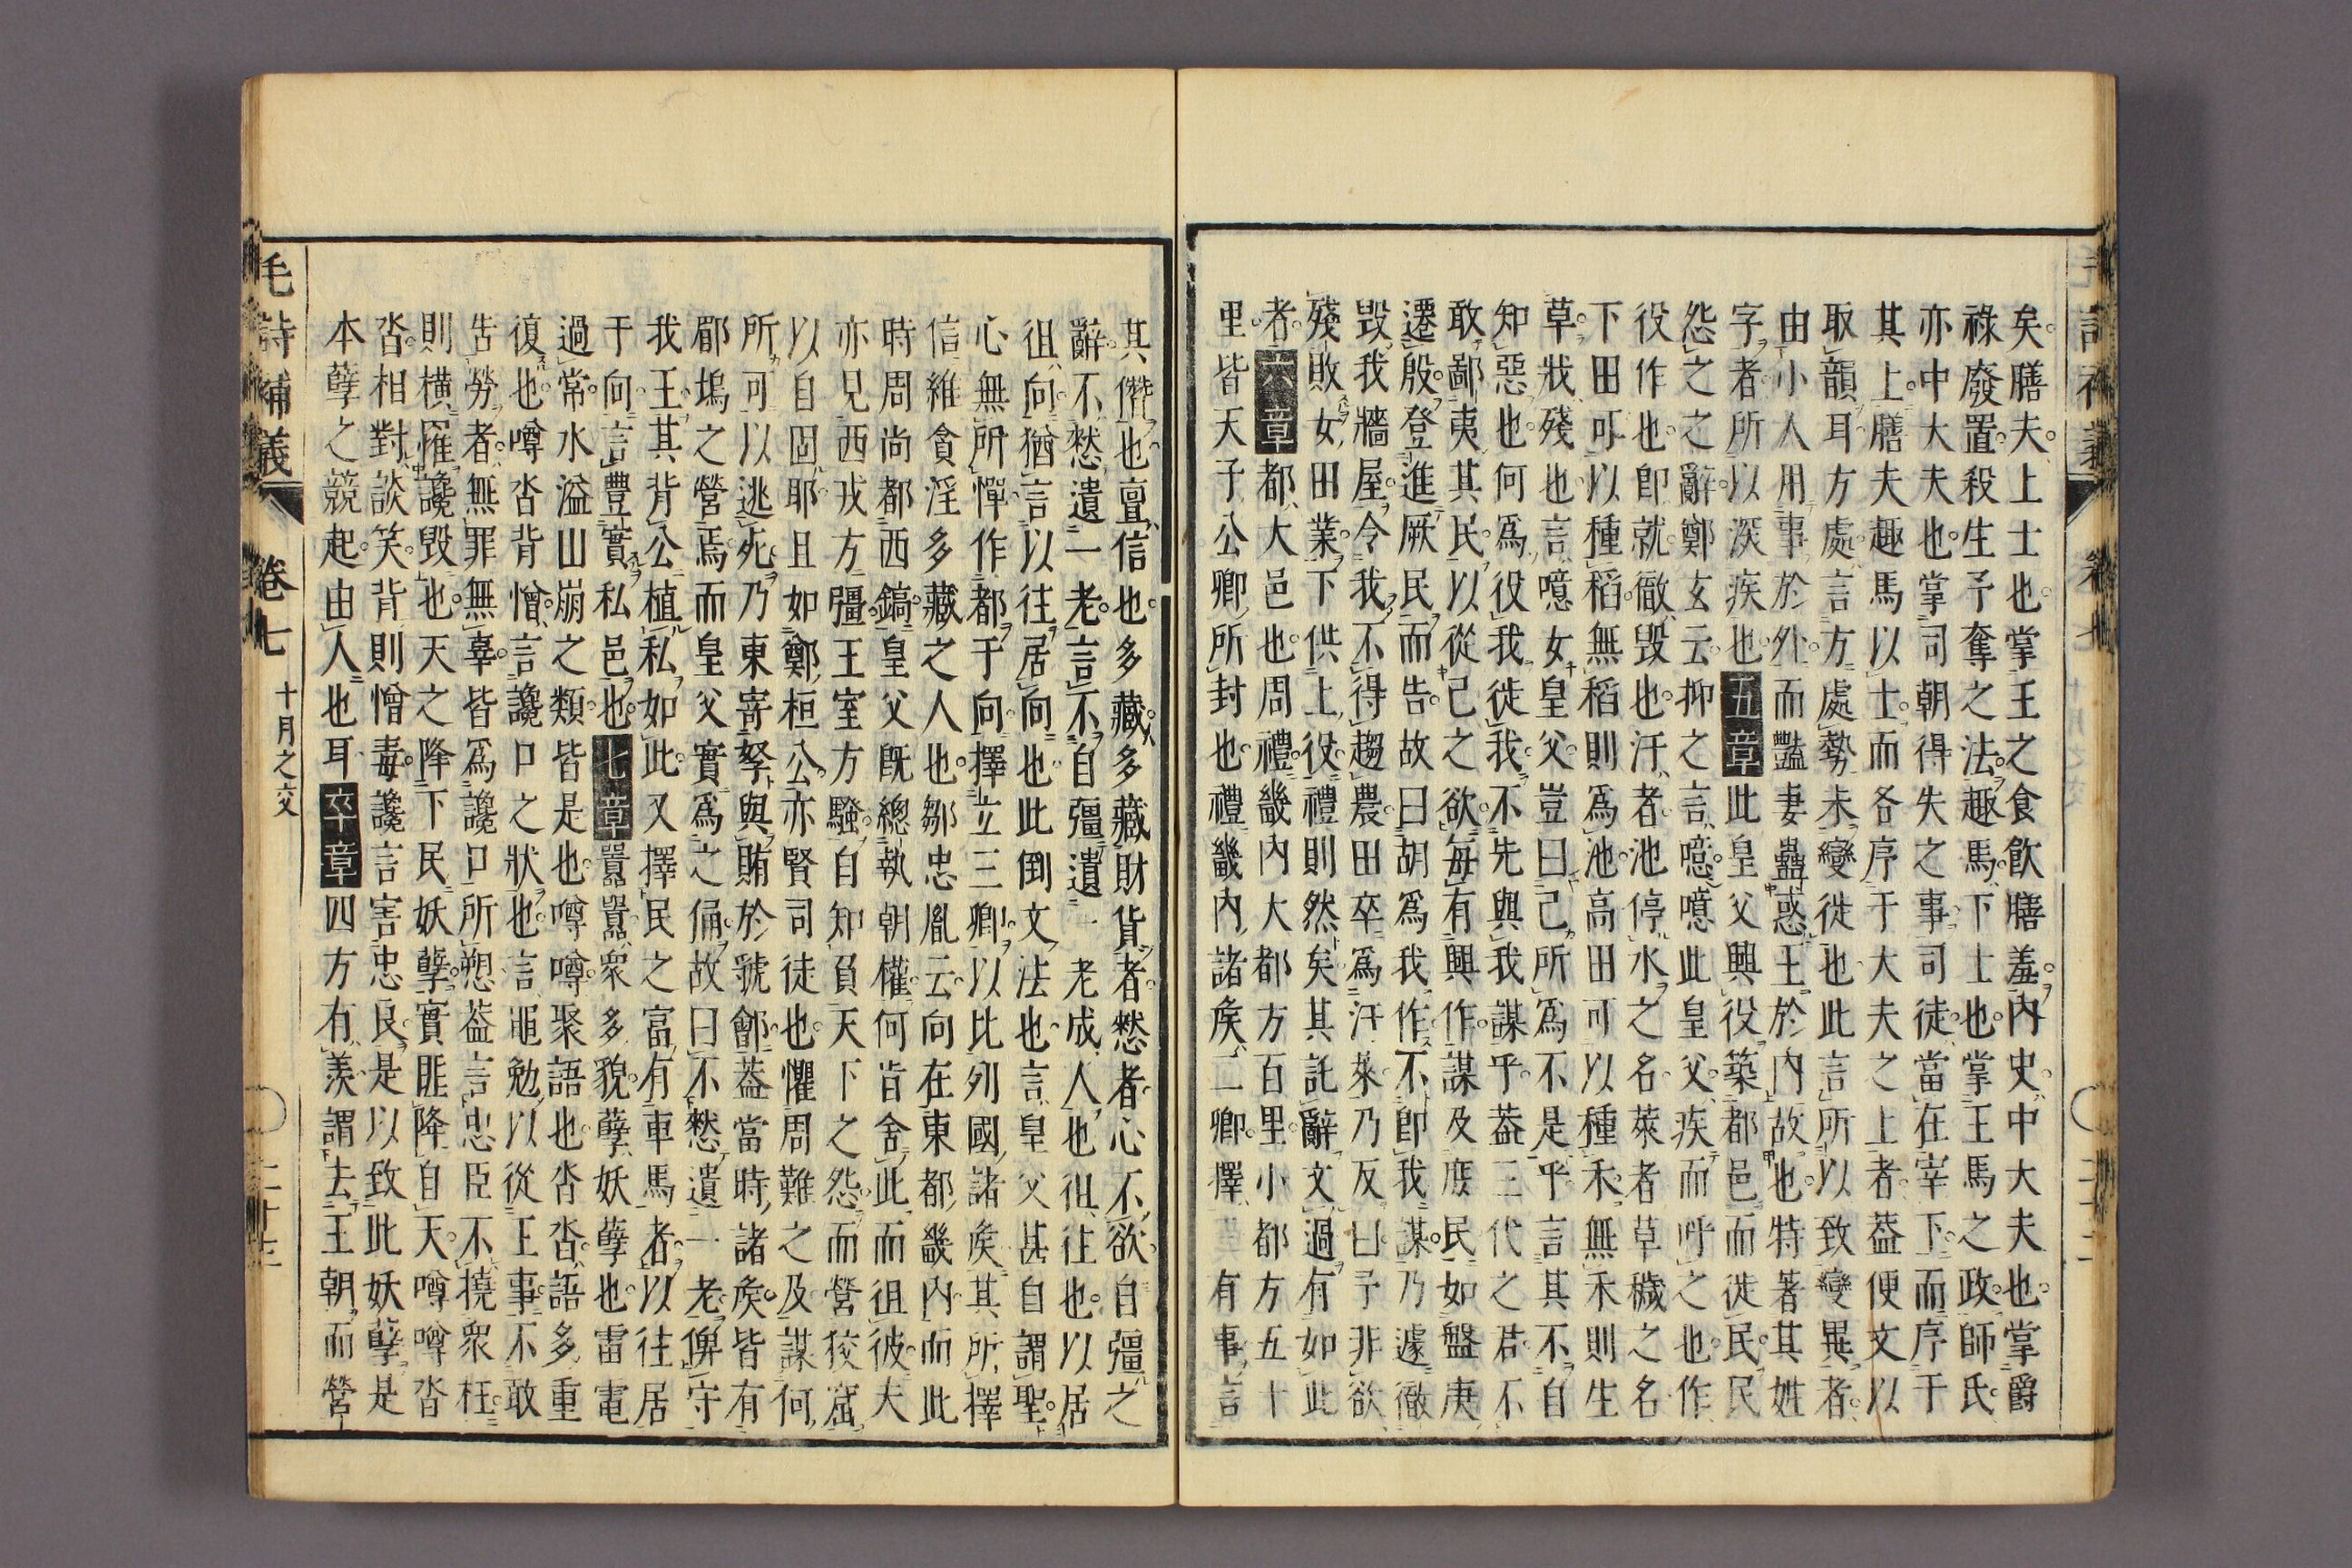 矣膳夫上士也掌王之食飲膳羞內史中大夫也掌爵
祿廢置殺生予奪之法趣馬下士也掌王馬之政師氏
亦中大夫也掌司朝得失之事司徒當在宰下而序于
其上膳夫趣馬以士而各序于大夫之上者葢便文以
取韻耳方處言方處勢未變徙也此言所以致變異者
由小人用事於外而豔妻蠱惑王於內故也特著其姓
字者所以深疾也五章此皇父興役築都邑而徙民民
怨之之辭鄭玄云抑之言噫噫此皇父疾而呼之也作
役作也卽就徹毀也汙者池停水之名萊者草穢之名
下田可以種稻無稻則爲池高田可以種禾無禾則生
草戕殘也言噫女皇父豈曰己所爲不是乎言其不自
知惡也何爲役我徙我不先與我謀乎葢三代之君不
敢鄙夷其民以從己之欲每有興作謀及庶民如盤庚
遷殷登進厥民而告故曰胡爲我作不卽我謀乃遽徹
毀我牆屋令我不得趨農田卒爲汙萊乃反曰予非欲
殘敗女田業下供上役禮則然矣其託辭文過有如此
者六章都大邑也周禮畿內大都方百里小都方五十
里皆天子公卿所封也禮畿內諸矦二卿擇三有事言
其僭也亶信也多藏多藏財貨者憖者心不欲自彊之
辭不憖遺一老言不自彊遺一老成人也徂往也以居
徂向猶言以往居向也此倒文法也言皇父甚自謂聖
心無所憚作都于向擇立三卿以比列國諸矦其所擇
信維貪淫多藏之人也鄒忠胤云向在東都畿內而此
時周尚都西鎬皇父旣總執朝權何肯舍此而徂彼夫
亦見西戎方彊王室方騷自知負天下之怨而營狡窟
以自固耶且如鄭桓公亦賢司徒也懼周難之及謀何
所可以逃死乃東寄孥與賄於虢鄶葢當時諸矦皆有
郿塢之營焉而皇父實爲之俑故曰不憖遺一老俾守
我王其背公植私如此又擇民之富有車馬者以往居
于向言豐實私邑也七章囂囂衆多貌孽妖孽也雷電
過常水溢山崩之類皆是也噂噂聚語也沓沓語多重
復也噂沓背憎言讒口之狀也言黽勉以從王事不敢
告勞者無罪無辜皆爲讒口所愬葢言忠臣不撓衆枉
則橫罹讒毀也天之降下民妖孽實匪降自天噂噂沓
沓相對談笑背則憎毒讒言害忠良是以致此妖孽是
本孽之競起由人也耳卒章四方有羨謂去王朝而營
毛詩補義 卷七 十月之交 二十三